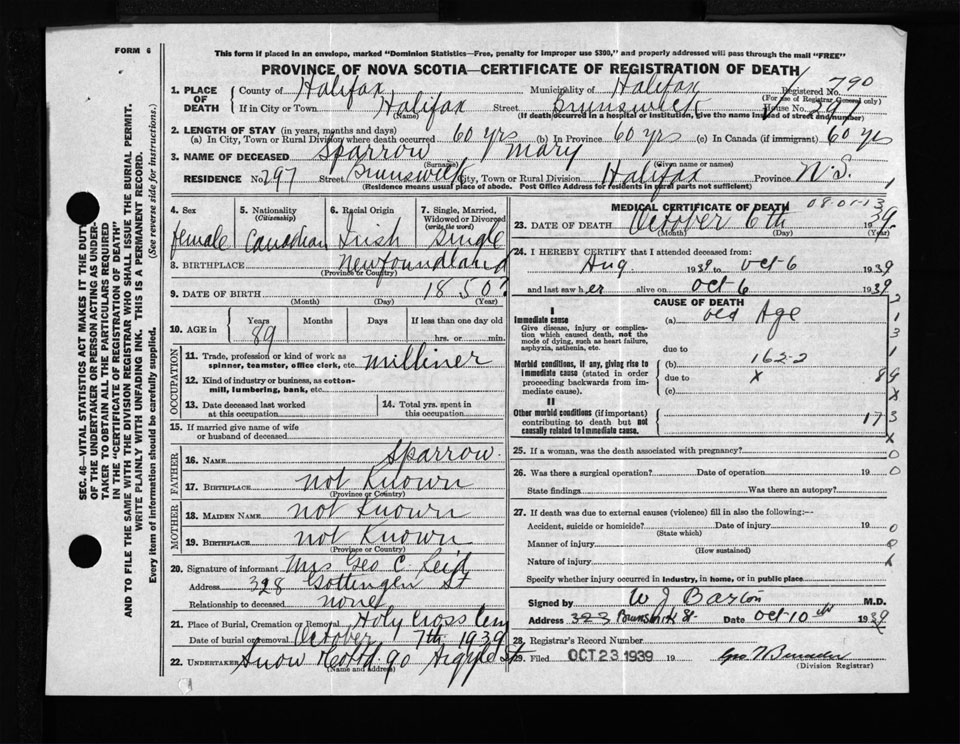 FORM 6
This form if placed in an envelope, marked "Dominion Statistics—Free, penalty for improper use $300," and properly addressed will pass through the mail "FREE"
PROVINCE OF NOVA SCOTIA—CERTIFICATE OF REGISTRATION OF DEATH
SEC. 46—VITAL STATISTICS ACT MAKES IT THE DUTY
OF THE UNDERTAKER OR PERSON ACTING AS UNDER-
TAKER TO OBTAIN ALL THE PARTICULARS REQUIRED
IN THE "CERTIFICATE OF REGISTRATION OF DEATH"
AND TO FILE THE SAME WITH THE DIVISION REGISTRAR WHO SHALL ISSUE THE BURIAL PERMIT.
WRITE PLAINLY WITH UNFADING INK. THIS IS A PERMANENT RECORD.
Every item of information should be carefully supplied. (See reverse side for instructions.)
1. PLACE OF DEATH County of Halifax Municipality of Halifax Registered No. 790
(For use of Registrar General only)
If in City or Town Halifax Street Brunswick House No. 297
(Name) (If death occurred in a hospital or institution, give the name instead of street and number)
2. LENGTH OF STAY (in years, months and days)
(a) In City, Town or Rural Division where death occurred 60 yrs (b) In Province 60 yrs (c) In Canada (if immigrant) 60 yrs
3. NAME OF DECEASED Sparrow Mary
(Surname) (Given name or names)
RESIDENCE No. 297 Street Brunswick City, Town or Rural Division Halifax Province N.S.
(Residence means usual place of abode. Post Office Address for residents in rural parts not sufficient)
4. Sex 5. Nationality (Citizenship) 6. Racial Origin 7. Single, Married, Widowed or Divorced (write the word)
female Canadian Irish Single
8. BIRTHPLACE Newfoundland
(Province or Country)
9. DATE OF BIRTH 1850?
(Month) (Day) (Year)
10. AGE in Years Months Days If less than one day old
89 hrs. or min.
OCCUPATION
11. Trade, profession or kind of work as spinner, teamster, office clerk, etc. Milliner
12. Kind of industry or business, as cotton-mill, lumbering, bank, etc.
13. Date deceased last worked at this occupation 14. Total yrs. spent in this occupation
15. If married give name of wife or husband of deceased
FATHER
16. NAME Sparrow.
17. BIRTHPLACE not Known
(Province or Country)
MOTHER
18. MAIDEN NAME not Known
19. BIRTHPLACE not Known
(Province or Country)
20. Signature of informant Mrs Geo C. Reid
Address 328 Gottingen St
Relationship to deceased none
21. Place of Burial, Cremation or Removal Holy Cross Cem
Date of burial or removal October 7th 1939
22. UNDERTAKER Snow Co Ltd 90 Argyle St
(Name and Address)
MEDICAL CERTIFICATE OF DEATH
23. DATE OF DEATH October 6th 1939
(Month) (Day) (Year)
24. I HEREBY CERTIFY that I attended deceased from:
Aug. 1939 to Oct 6 1939
and last saw her alive on Oct 6 1939
CAUSE OF DEATH
I
Immediate cause (a) Old Age
Give disease, injury or complication which caused death, not the mode of dying, such as heart failure, asphyxia, asthenia, etc.
due to
162-2
Morbid conditions, if any, giving rise to immediate cause (stated in order proceeding backwards from immediate cause). (b)
due to X
(c)
II
Other morbid conditions (if important) contributing to death but not causally related to immediate cause.
25. If a woman, was the death associated with pregnancy?
26. Was there a surgical operation? Date of operation 19
State findings Was there an autopsy?
27. If death was due to external causes (violence) fill in also the following:—
Accident, suicide or homicide? Date of injury 19
(State which)
Manner of injury
(How sustained)
Nature of injury
Specify whether injury occurred in industry, in home, or in public place
Signed by W J Barton M.D.
Address 323 Brunswick St. Date Oct 10th 1939
28. Registrar's Record Number
29. Filed OCT 23 1939 19
(Division Registrar)